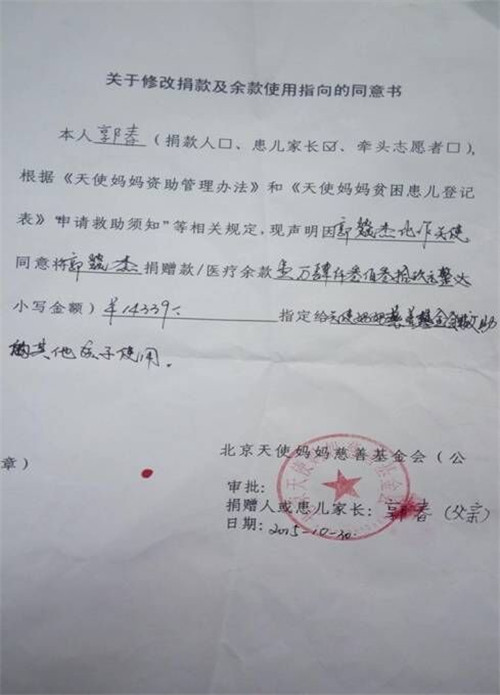 关于修改捐款及余款使用指向的同意书
本人郭春（捐款人□、患儿家长☑、牵头志愿者□），
根据《天使妈妈资助管理办法》和《天使妈妈贫困患儿登记
表》“申请救助须知”等相关规定，现声明因郭魏杰化作天使
同意将郭魏杰捐赠款/医疗余款壹万肆仟叁佰叁拾玖元整（
小写金额）￥14339元 指定给天使妈妈慈善基金会救助
的其他孩子使用。
北京天使妈妈慈善基金会（公
章）
审批：
捐赠人或患儿家长：郭春（父亲）
日期：2015-10-30